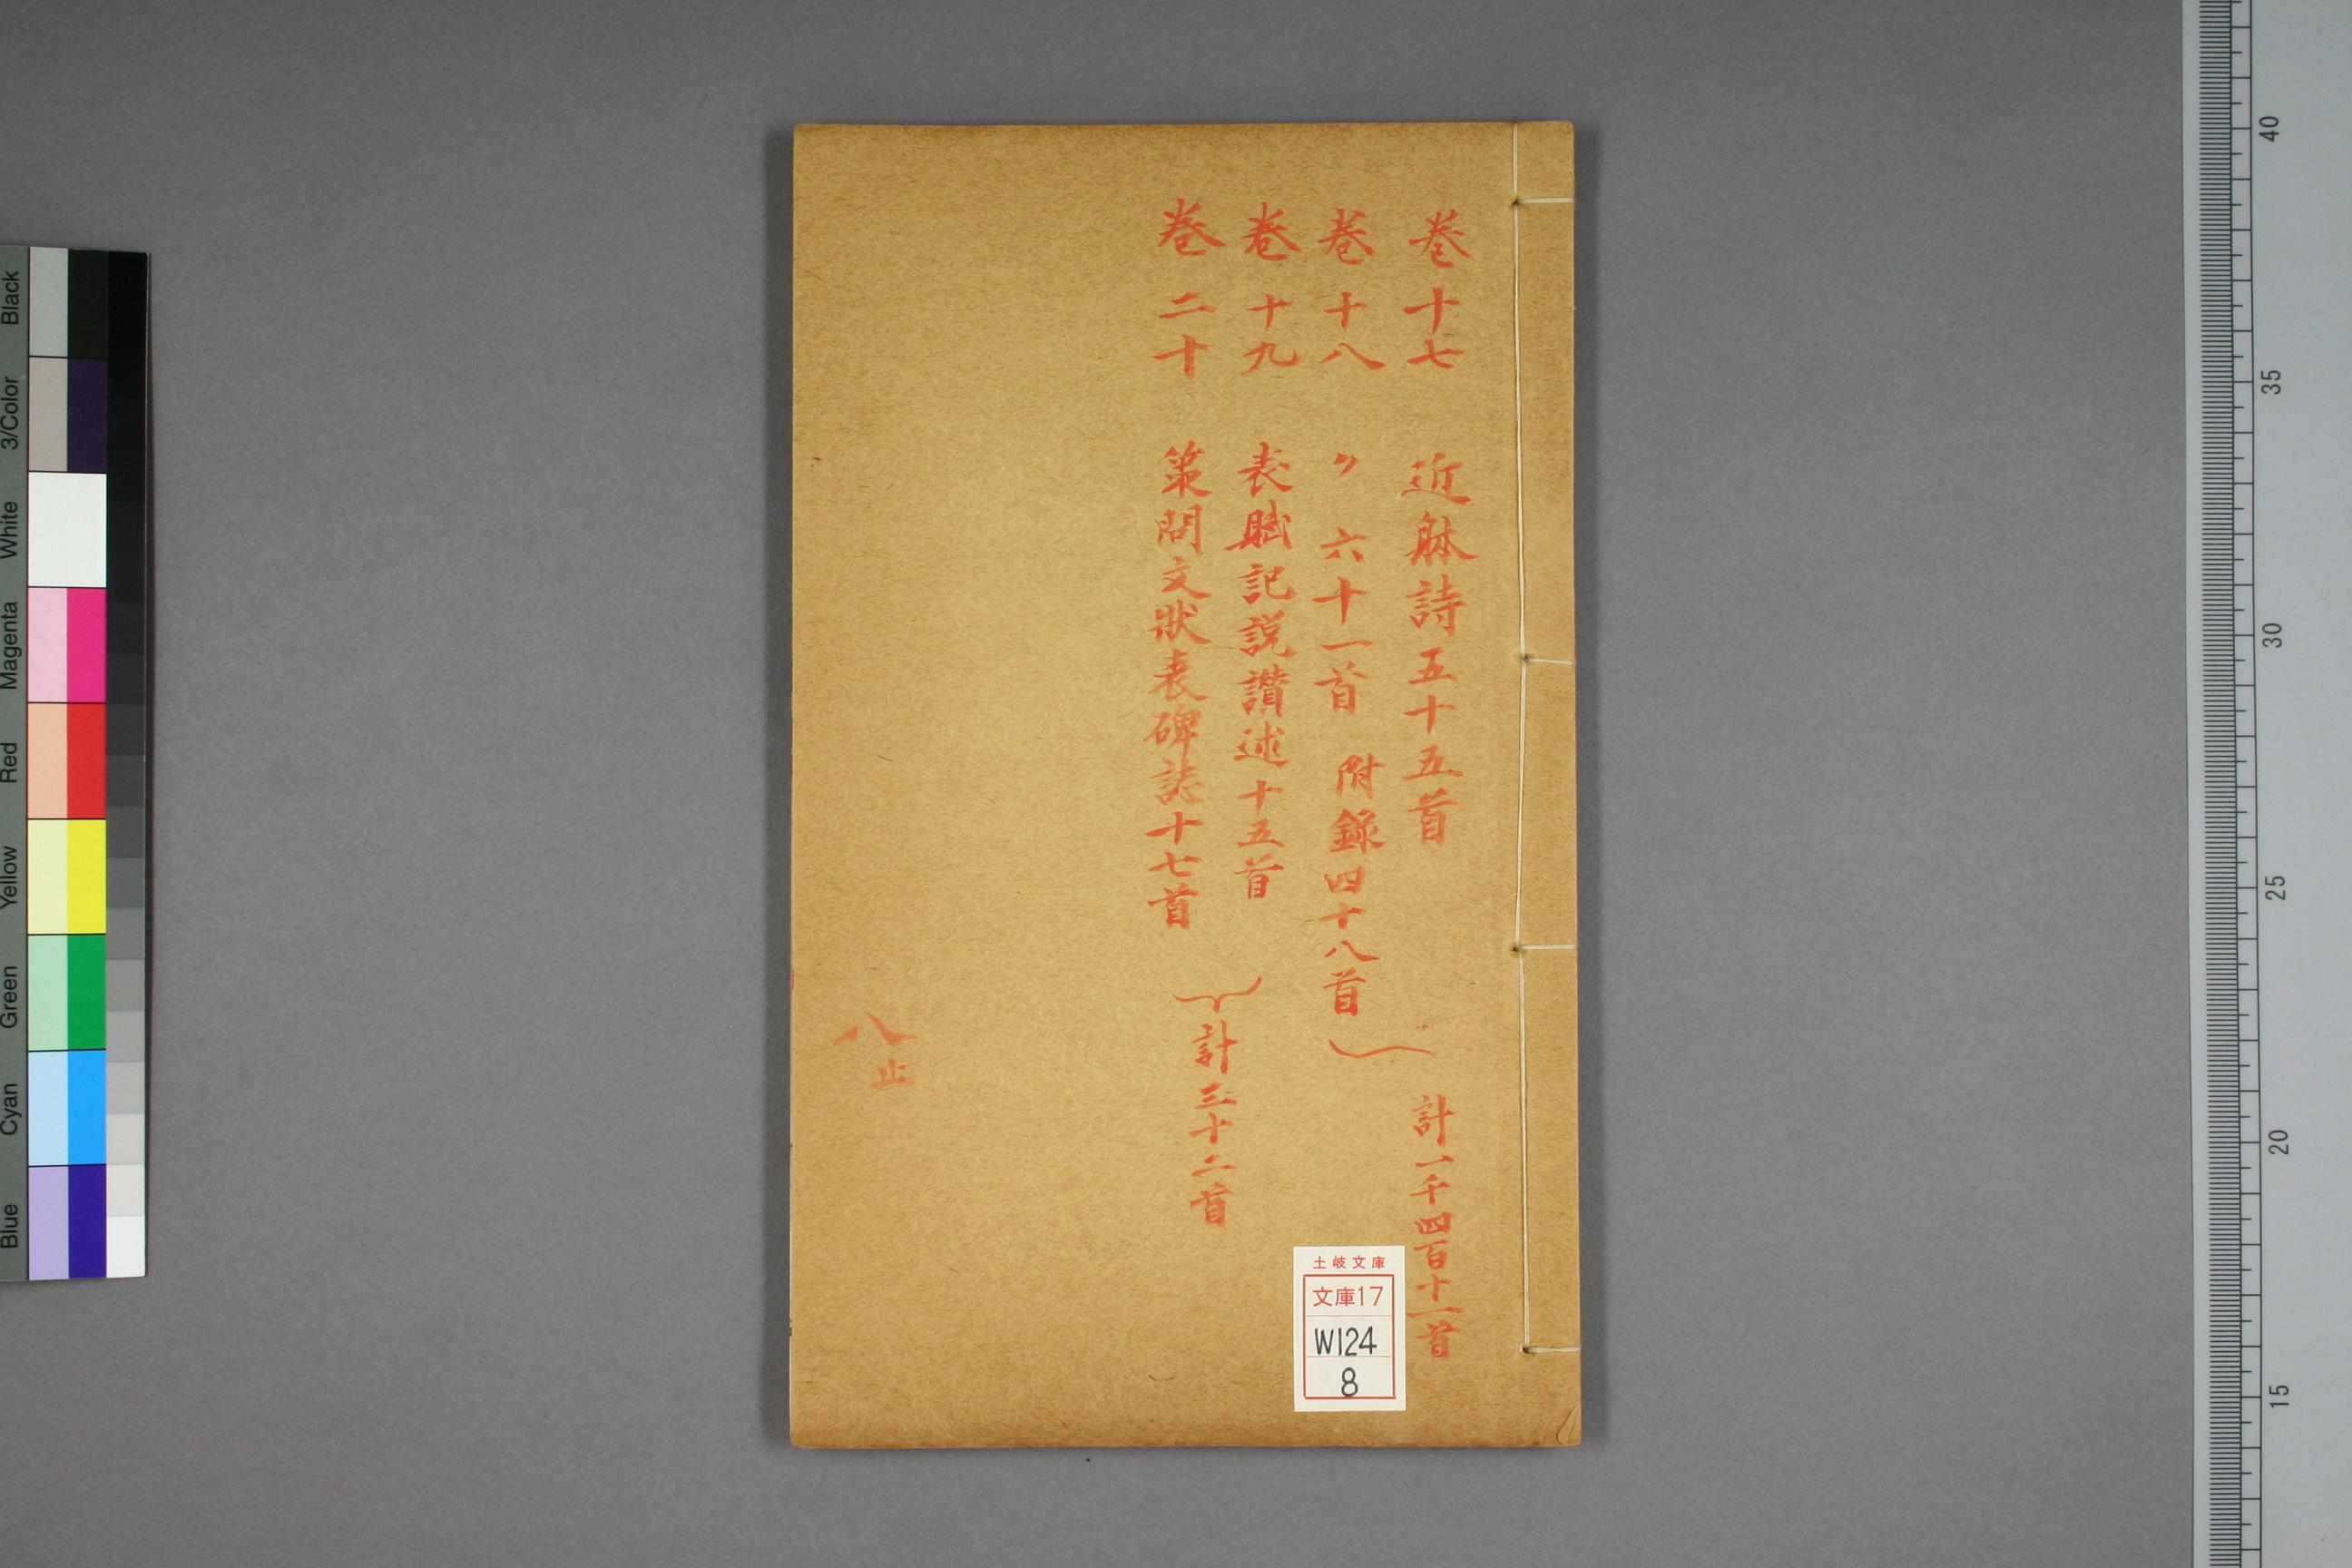 卷十七 近躰詩五十五首
卷十八 〃 六十一首 附錄四十八首
計一千四百十一首
卷十九 表賦記説讃述十五首
卷二十 策問文狀表碑誌十七首
計三十二首
八止
土岐文庫
文庫17
W124
8
Black
3/Color
White
Magenta
Red
Yellow
Green
Cyan
Blue
40
35
30
25
20
15